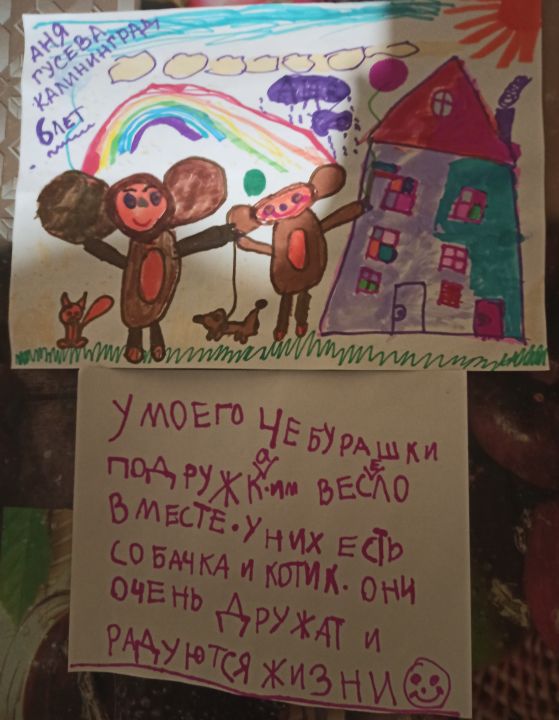 АНЯ
ГУСЕВА,
КАЛИНИНГРАД,
6 ЛЕТ
У МОЕГО ЧЕБУРАШКИ
ПОДРУЖКА. ИМ ВЕСЕЛО
ВМЕСТЕ. У НИХ ЕСТЬ
СОБАЧКА И КОТИК. ОНИ
ОЧЕНЬ ДРУЖАТ И
РАДУЮТСЯ ЖИЗНИ